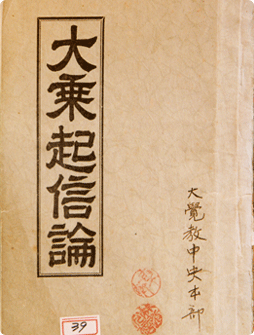 大乘起信論
大覺教中央本部
39